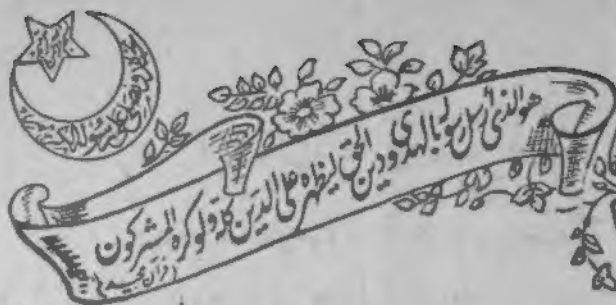 هو الذی ارسل رسولہ بالہدی و دین الحق لیظہرہ علی الدین کلہ ولو کرہ المشرکون
(قرآن مجید)